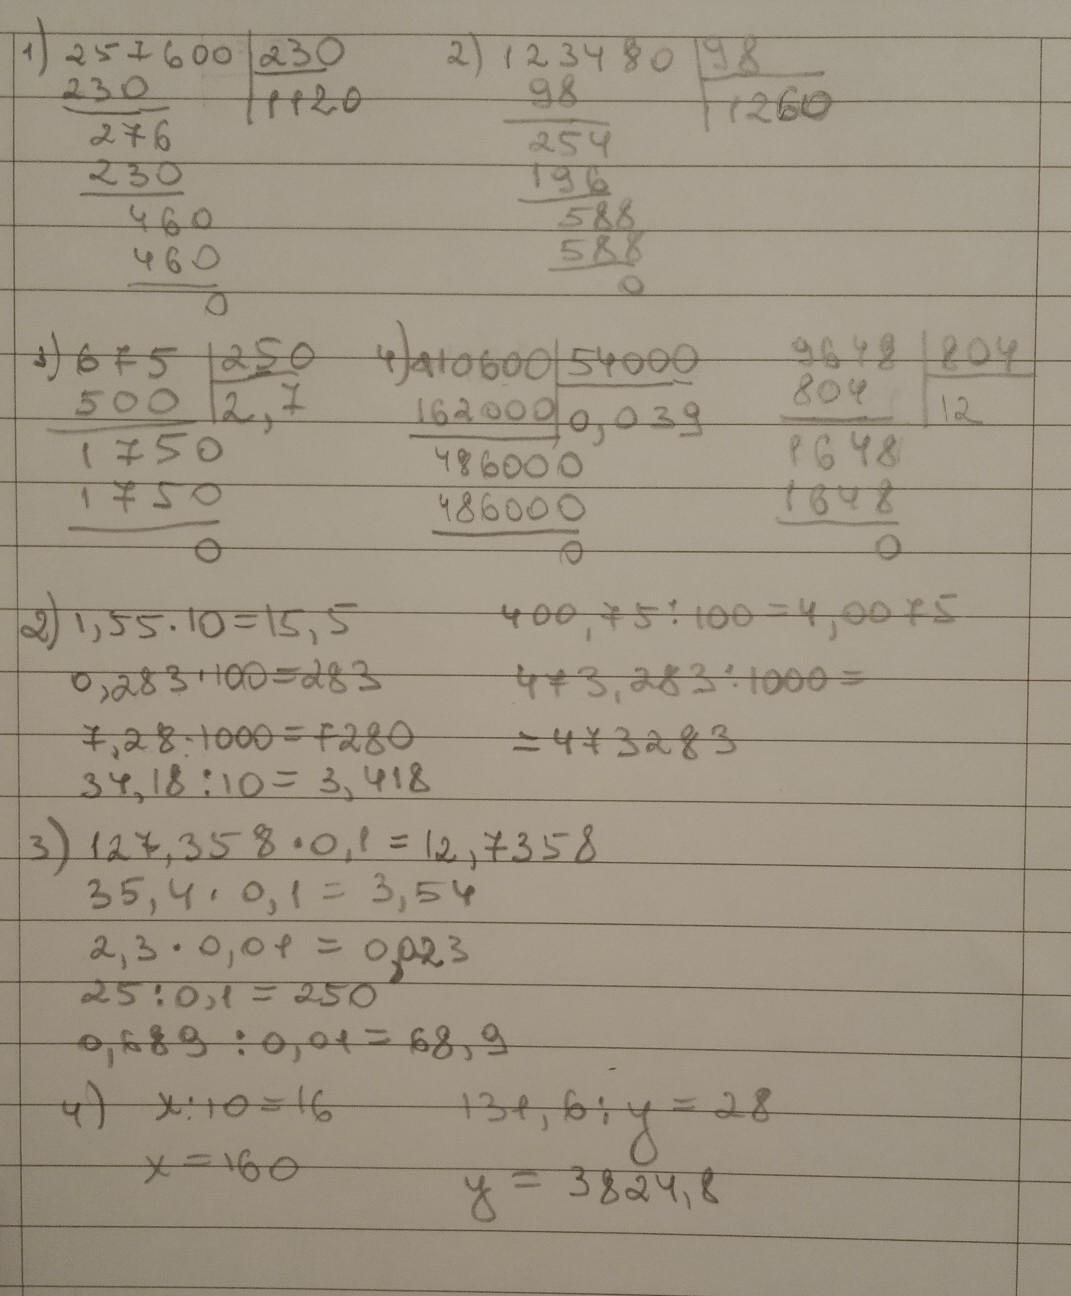 1) 257600 230
230 1120
276
230
460
460
0
2) 123480 98
98 1260
254
196
588
588
0
3) 675 250
500 2,7
1750
1750
0
4) 210600 54000
162000 0,039
486000
486000
0
9648 804
804 12
1648
1648
0
2) 1,55·10=15,5
0,283·100=283
7,28·1000=7280
34,18:10=3,418
400,75:100=4,0075
473,283:1000=
=473283
3) 127,358·0,1=12,7358
35,4·0,1=3,54
2,3·0,01=0,023
25:0,1=250
0,689:0,01=68,9
4) x:10=16
x=160
131,6:y=28
y=3824,8